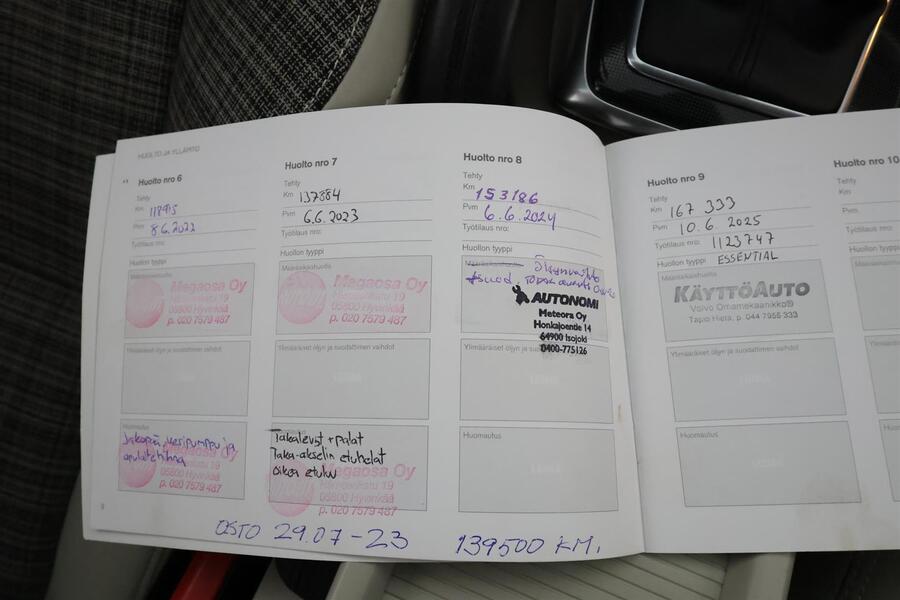 HUOLTO JA YLLÄPITO
Huolto nro 6
Tehty
Km 118915
Pvm 8.6.2022
Työtilaus nro:
Huollon tyyppi
Määräaikaishuolto
Megaosa Oy
05800 Hyvinkää
p. 020 7579 487
Huomautus
Jakopää, vesipumppu ja
apulaitehihna
Megaosa Oy
05800 Hyvinkää
p. 020 7579 487
Huolto nro 7
Tehty
Km 137884
Pvm 6.6.2023
Työtilaus nro:
Huollon tyyppi
Määräaikaishuolto
Megaosa Oy
05800 Hyvinkää
p. 020 7579 487
Takalevyt + palat
Taka-akselin etuhelat
oikea etuku
Megaosa Oy
05800 Hyvinkää
p. 020 7579 487
Huolto nro 8
Tehty
Km 153186
Pvm 6.6.2024
Työtilaus nro:
Huollon tyyppi
Öljynvaihto
AUTONOMI
Meteora Oy
Honkajoentie 14
64900 Isojoki
0400-775126
Ylimääräiset öljyn ja suodattimen vaihdot
Huomautus
Huolto nro 9
Tehty
Km 167 333
Pvm 10.6.2025
Työtilaus nro: 1123747
Huollon tyyppi ESSENTIAL
Määräaikaishuolto
KÄYTTÖAUTO
Volvo Omamekaanikko®
Tapio Hieta, p. 044 7955 333
Ylimääräiset öljyn ja suodattimen vaihdot
Huomautus
Huolto nro 10
Tehty
Km
Pvm
OSTO 29.07-23 139500 KM.